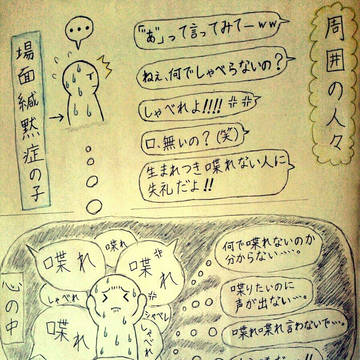 周囲の人々
「"あ"」って言ってみてーww
ねぇ、何でしゃべらないの?
しゃべれよ!!!!
口、無いの?(笑)
生まれつき喋れない人に
失礼だよ!!
場面緘黙症の子
…
心の中
喋れ
喋れ
喋れ
しゃべれ
シャベレ
喋れ
しゃべれ
何で喋れないのか
分からない…。
喋りたいのに
声が出ない…。
喋れ喋れ言わないで…。